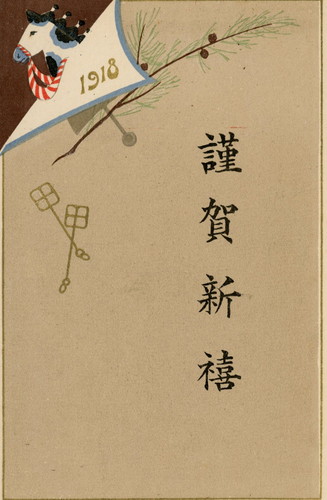 1918
謹賀新禧